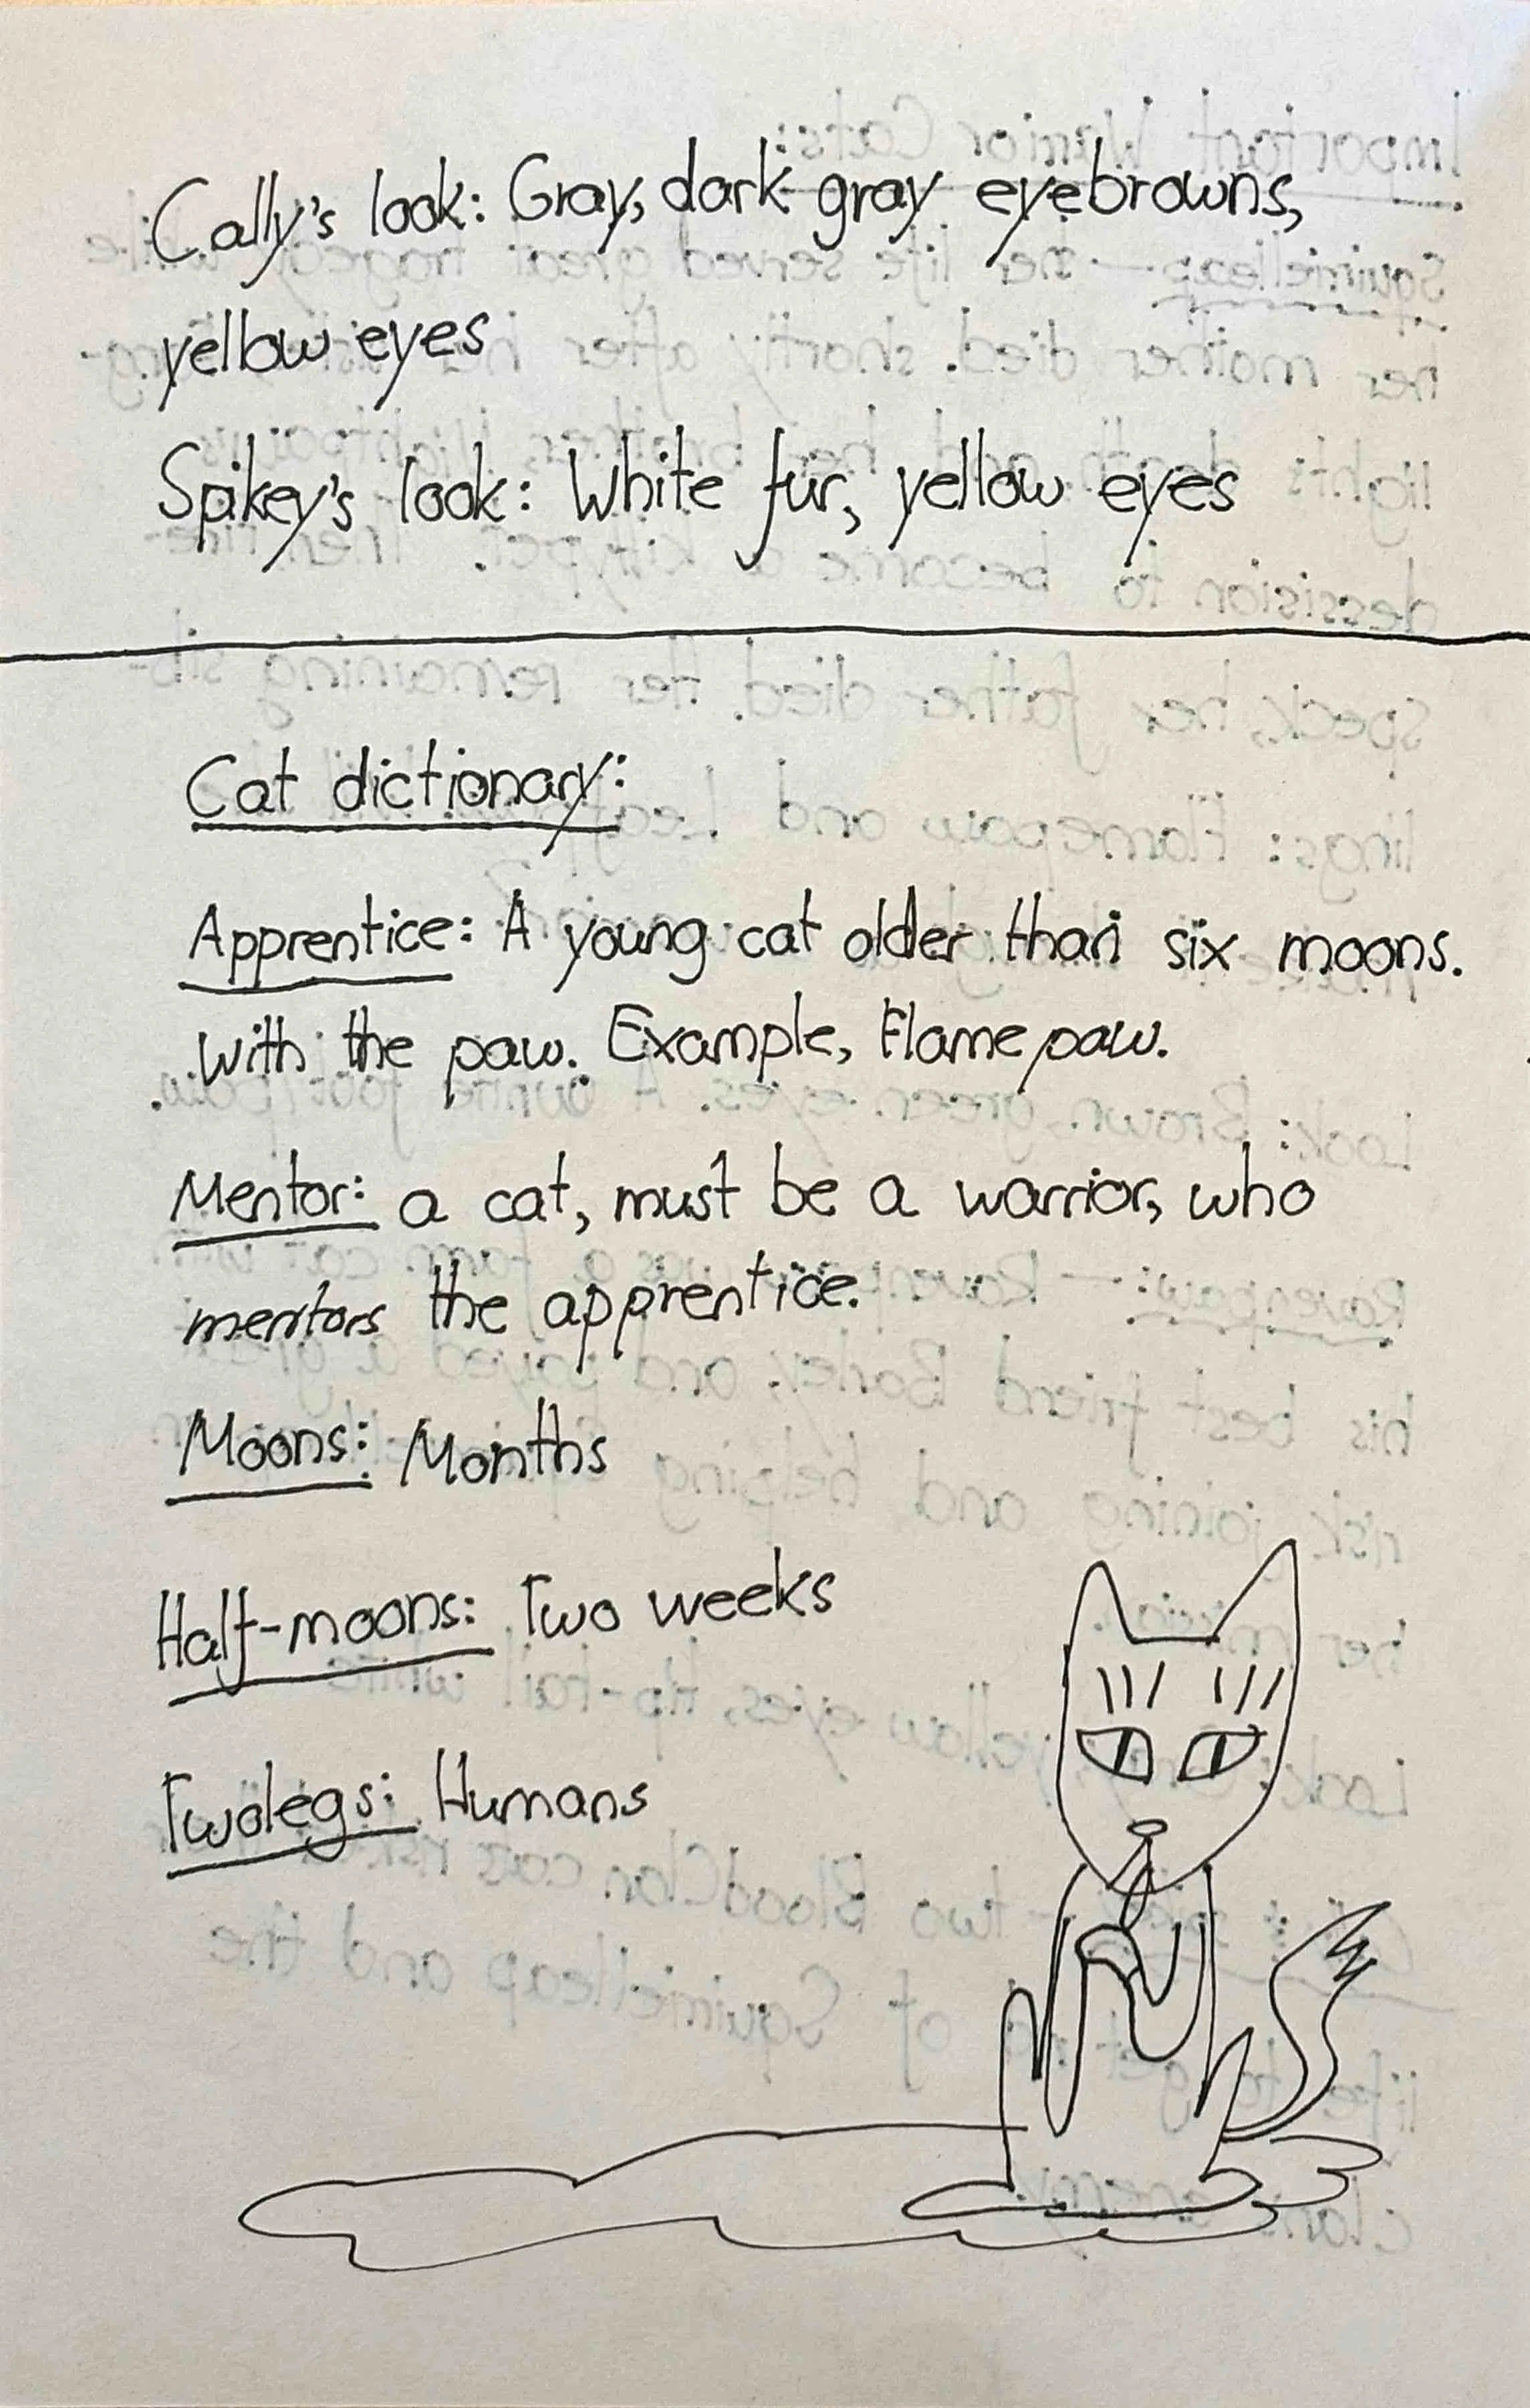 Cally's look: Gray, dark gray eyebrowns,
yellow eyes
Spikey's look: White fur, yellow eyes
Cat dictionary:
Apprentice: A young cat older than six moons.
with the paw. Example, Flamepaw.
Mentor: a cat, must be a warrior, who
mentors the apprentice.
Moons: Months
Half-moons: Two weeks
Twolegs: Humans